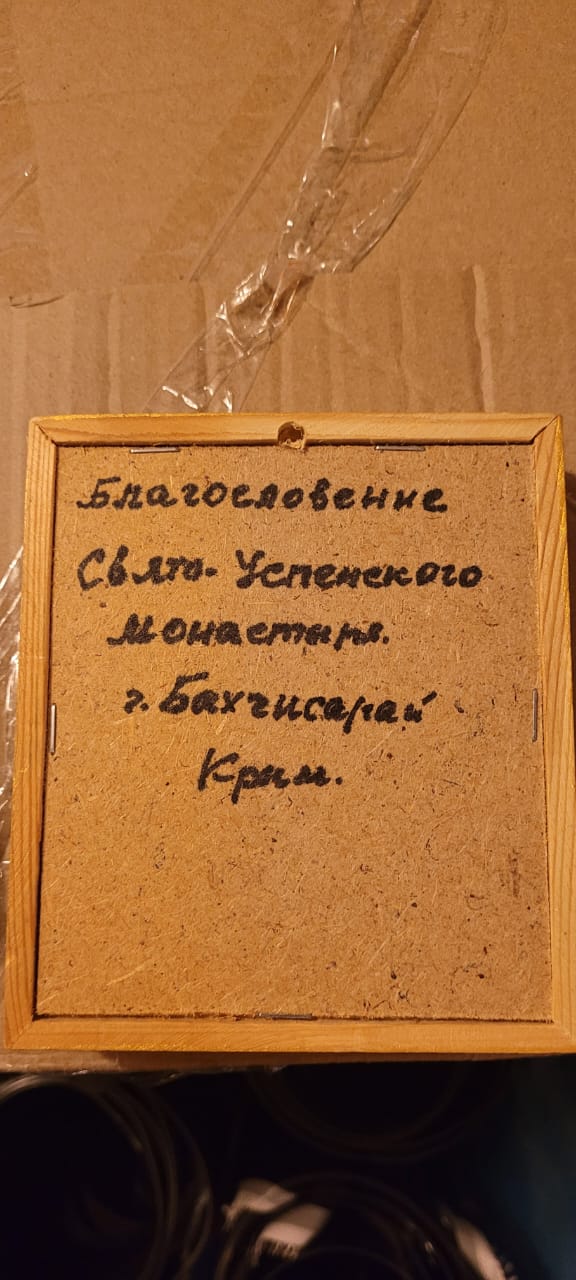 Благословение
Свято-Успенского
монастыря.
г. Бахчисарай
Крым.